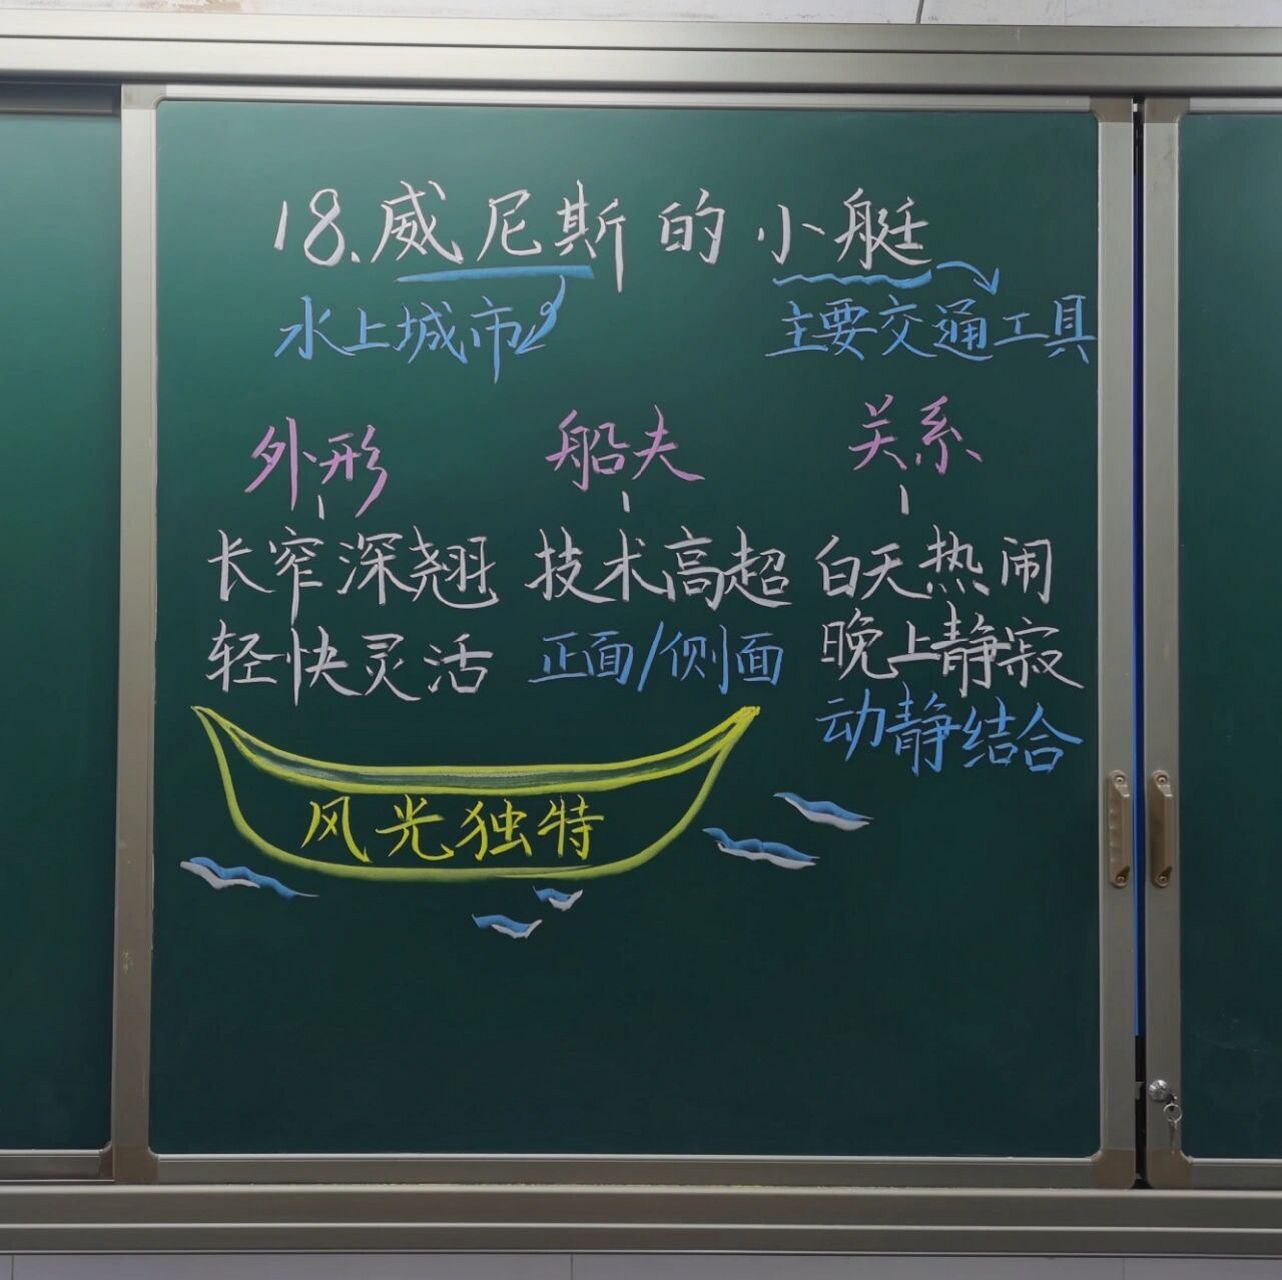 18.威尼斯的小艇
水上城市 主要交通工具
外形 船夫 关系
长窄深翘 技术高超 白天热闹
轻快灵活 正面/侧面 晚上静寂
动静结合
风光独特